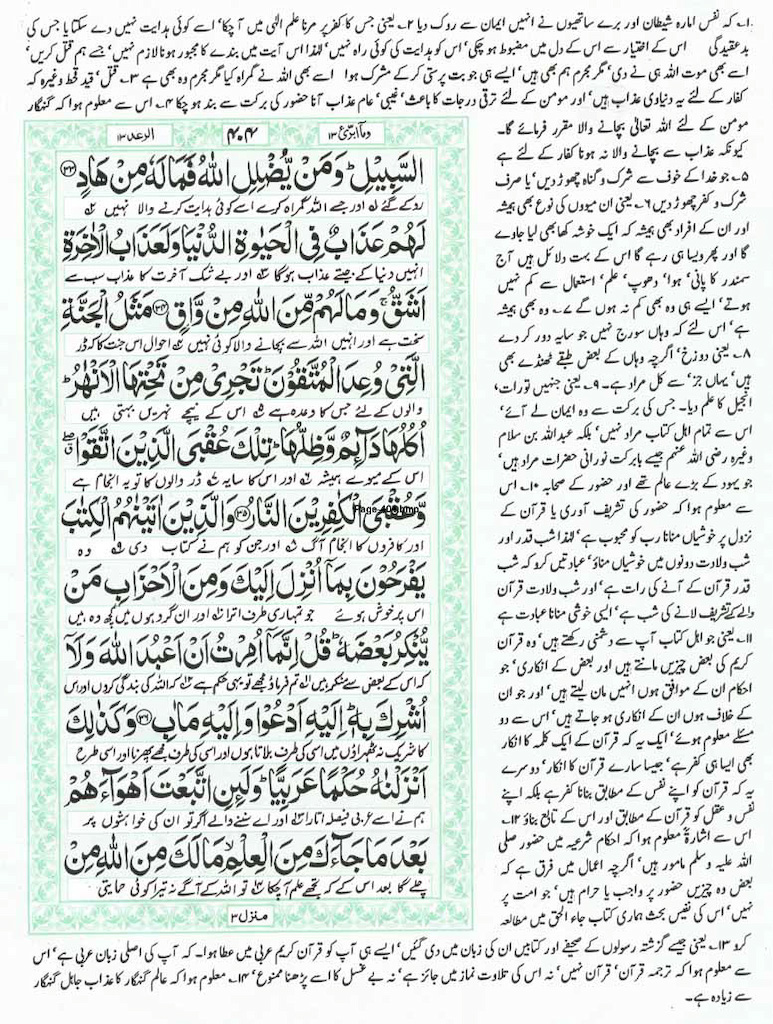 ۱۔ کہ نفس امارہ شیطان اور برے ساتھیوں نے انہیں ایمان سے روک دیا ۲۔ یعنی جس کا کفر پر مرنا علم الٰہی میں آ چکا' اسے کوئی ہدایت نہیں دے سکتا یا جس کی
بدعقیدگی اس کے اختیار سے اس کے دل میں مضبوط ہو چکی' اس کو ہدایت کی کوئی راہ نہیں' لہٰذا اس آیت میں بندے کا مجبور ہونا لازم نہیں' جسے ہم قتل کریں'
اسے بھی موت اللہ ہی نے دی' مگر مجرم ہم بھی ہیں' ایسے ہی جو بت پرستی کر کے مشرک ہوا اسے بھی اللہ نے گمراہ کیا مگر مجرم وہ بھی ہے ۳۔ قتل' قید قحط وغیرہ کہ
کفار کے لئے یہ دنیاوی عذاب ہیں' اور مومن کے لئے ترقی درجات کا باعث' غیبی' عام عذاب آنا حضور کی برکت سے بند ہو چکا ۴۔ اس سے معلوم ہوا کہ گنہگار
مومن کے لئے اللہ تعالیٰ بچانے والا مقرر فرمائے گا۔
کیونکہ عذاب سے بچانے والا نہ ہونا کفار کے لئے ہے
۵۔ جو خدا کے خوف سے شرک و گناہ چھوڑ دیں' یا صرف
شرک و کفر چھوڑ دیں ۶۔ یعنی ان میووں کی نوع بھی ہمیشہ
اور ان کے افراد بھی ہمیشہ کہ ایک خوشہ کھا بھی لیا جاوے
گا اور پھر ویسا ہی رہے گا اس کے بہت دلائل ہیں آج
سمندر کا پانی' ہوا' دھوپ' علم' استعمال سے کم نہیں
ہوتے' ایسے ہی وہ بھی کم نہ ہوں گے ۷۔ وہ بھی ہمیشہ
ہے' اس لئے کہ وہاں سورج نہیں جو سایہ دور کر دے
۸۔ یعنی دوزخ' اگرچہ وہاں کے بعض طبقے ٹھنڈے بھی
ہیں' یہاں جز' سے کل مراد ہے۔ ۹۔ یعنی جنہیں تورات'
انجیل کا علم دیا۔ جس کی برکت سے وہ ایمان لے آئے'
اس سے تمام اہل کتاب مراد نہیں' بلکہ عبداللہ بن سلام
وغیرہ رضی اللہ عنہم جیسے بابرکت نورانی حضرات مراد ہیں'
جو یہود کے بڑے عالم تھے اور حضور کے صحابہ ۱۰۔ اس
سے معلوم ہوا کہ حضور کی تشریف آوری یا قرآن کے
نزدول پر خوشیاں منانا رب کو محبوب ہے' لہٰذا شب قدر اور
شب ولادت دونوں میں خوشیاں مناؤ' عبادتیں کرو کہ شب
قدر قرآن کے آنے کی رات ہے' اور شب ولادت قرآن
والے کے تشریف لانے کی شب ہے' ایسی خوشی منانا عبادت ہے
۱۱۔ یعنی جو اہل کتاب آپ سے دشمنی رکھتے ہیں' وہ قرآن
کریم کی بعض چیزیں مانتے ہیں اور بعض کے انکاری' جو
احکام ان کے موافق ہوں انہیں مان لیتے ہیں' اور جو ان
کے خلاف ہوں ان کے انکاری ہو جاتے ہیں' اس سے دو
مسئلے معلوم ہوئے' ایک یہ کہ قرآن کے ایک کلمہ کا انکار
بھی ایسا ہی کفر ہے' جیسا سارے قرآن کا انکار' دوسرے
یہ کہ قرآن کو اپنے نفس کے مطابق بنانا کفر ہے بلکہ اپنے
نفس و عقل کو قرآن کے مطابق اور اس کے تابع بناؤ ۱۲۔
اس سے اشارۃً معلوم ہوا کہ احکام شرعیہ میں حضور صلی
اللہ علیہ وسلم مامور ہیں' اگرچہ اعمال میں فرق ہے کہ
بعض وہ چیزیں حضور پر واجب یا حرام ہیں' جو امت پر
نہیں' اس کی نفیس بحث ہماری کتاب جاء الحق میں مطالعہ
کرو ۱۳۔ یعنی جیسے گزشتہ رسولوں کے صحیفے اور کتابیں ان کی زبان میں دی گئیں' ایسے ہی آپ کو قرآن کریم عربی میں عطا ہوا۔ کہ آپ کی اصلی زبان عربی ہے' اس
سے معلوم ہوا کہ ترجمہ قرآن' قرآن نہیں' نہ اس کی تلاوت نماز میں جائز ہے' نہ بے غسل کا اسے پڑھنا ممنوع' ۱۴۔ معلوم ہوا کہ عالم گنہگار کا عذاب جاہل گنہگار
سے زیادہ ہے۔
الرعد ۱۳ ۴۰۴ وما ابرئ ۱۳
السَّبِیْلِ ؕ وَمَنْ یُّضْلِلِ اللّٰهُ فَمَا لَهٗ مِنْ هَادٍ ﴿۳۳﴾
روکے گئے ۱ اور جسے اللہ گمراہ کرے اسے کوئی ہدایت کرنے والا نہیں ۲
لَهُمْ عَذَابٌ فِی الْحَیٰوةِ الدُّنْیَا وَلَعَذَابُ الْاٰخِرَةِ
انہیں دنیا کے جیتے عذاب ہوگا ۳ اور بے شک آخرت کا عذاب سب سے
اَشَقُّ ۚ وَمَا لَهُمْ مِّنَ اللّٰهِ مِنْ وَّاقٍ ﴿۳۴﴾ مَثَلُ الْجَنَّةِ
سخت ہے اور انہیں اللہ سے بچانے والا کوئی نہیں ۴ احوال اس جنت کا کہ ڈر
الَّتِیْ وُعِدَ الْمُتَّقُوْنَ ؕ تَجْرِیْ مِنْ تَحْتِهَا الْاَنْهٰرُ ؕ
والوں کے لئے جس کا وعدہ ہے ۵ اس کے نیچے نہریں بہتی ہیں
اُكُلُهَا دَآئِمٌ وَّظِلُّهَا ؕ تِلْكَ عُقْبَی الَّذِیْنَ اتَّقَوْا ۖۗ
اس کے میوے ہمیشہ ۶ اور اس کا سایہ ۷ ڈر والوں کا تو یہ انجام ہے
وَّعُقْبَی الْكٰفِرِیْنَ النَّارُ ﴿۳۵﴾ وَالَّذِیْنَ اٰتَیْنٰهُمُ الْكِتٰبَ
اور کافروں کا انجام آگ ۸ اور جن کو ہم نے کتاب دی ۹ وہ
یَفْرَحُوْنَ بِمَاۤ اُنْزِلَ اِلَیْكَ وَمِنَ الْاَحْزَابِ مَنْ
اس پر خوش ہوئے جو تمہاری طرف اترا ۱۰ اور ان گروہوں میں کچھ وہ ہیں
یُّنْكِرُ بَعْضَهٗ ؕ قُلْ اِنَّمَاۤ اُمِرْتُ اَنْ اَعْبُدَ اللّٰهَ وَلَاۤ
کہ اس کے بعض سے منکر ہیں ۱۱ تم فرماؤ مجھے تو یہی حکم ہے ۱۲ کہ اللہ کی بندگی کروں اور اس
اُشْرِكَ بِهٖ ؕ اِلَیْهِ اَدْعُوْا وَاِلَیْهِ مَاٰبِ ﴿۳۶﴾ وَكَذٰلِكَ
کا شریک نہ ٹھہراؤں میں اسی کی طرف بلاتا ہوں اور اسی کی طرف مجھے پھرنا اور اسی طرح
اَنْزَلْنٰهُ حُكْمًا عَرَبِیًّا ؕ وَلَئِنِ اتَّبَعْتَ اَهْوَآءَهُمْ
ہم نے اسے عربی فیصلہ اتارا ۱۳ اور اے سننے والے اگر تو ان کی خواہشوں پر
بَعْدَ مَا جَآءَكَ مِنَ الْعِلْمِ ۙ مَا لَكَ مِنَ اللّٰهِ مِنْ
چلے گا بعد اس کے کہ تجھے علم آ چکا ۱۴ تو اللہ کے آگے نہ تیرا کوئی حمایتی
منزل ۳